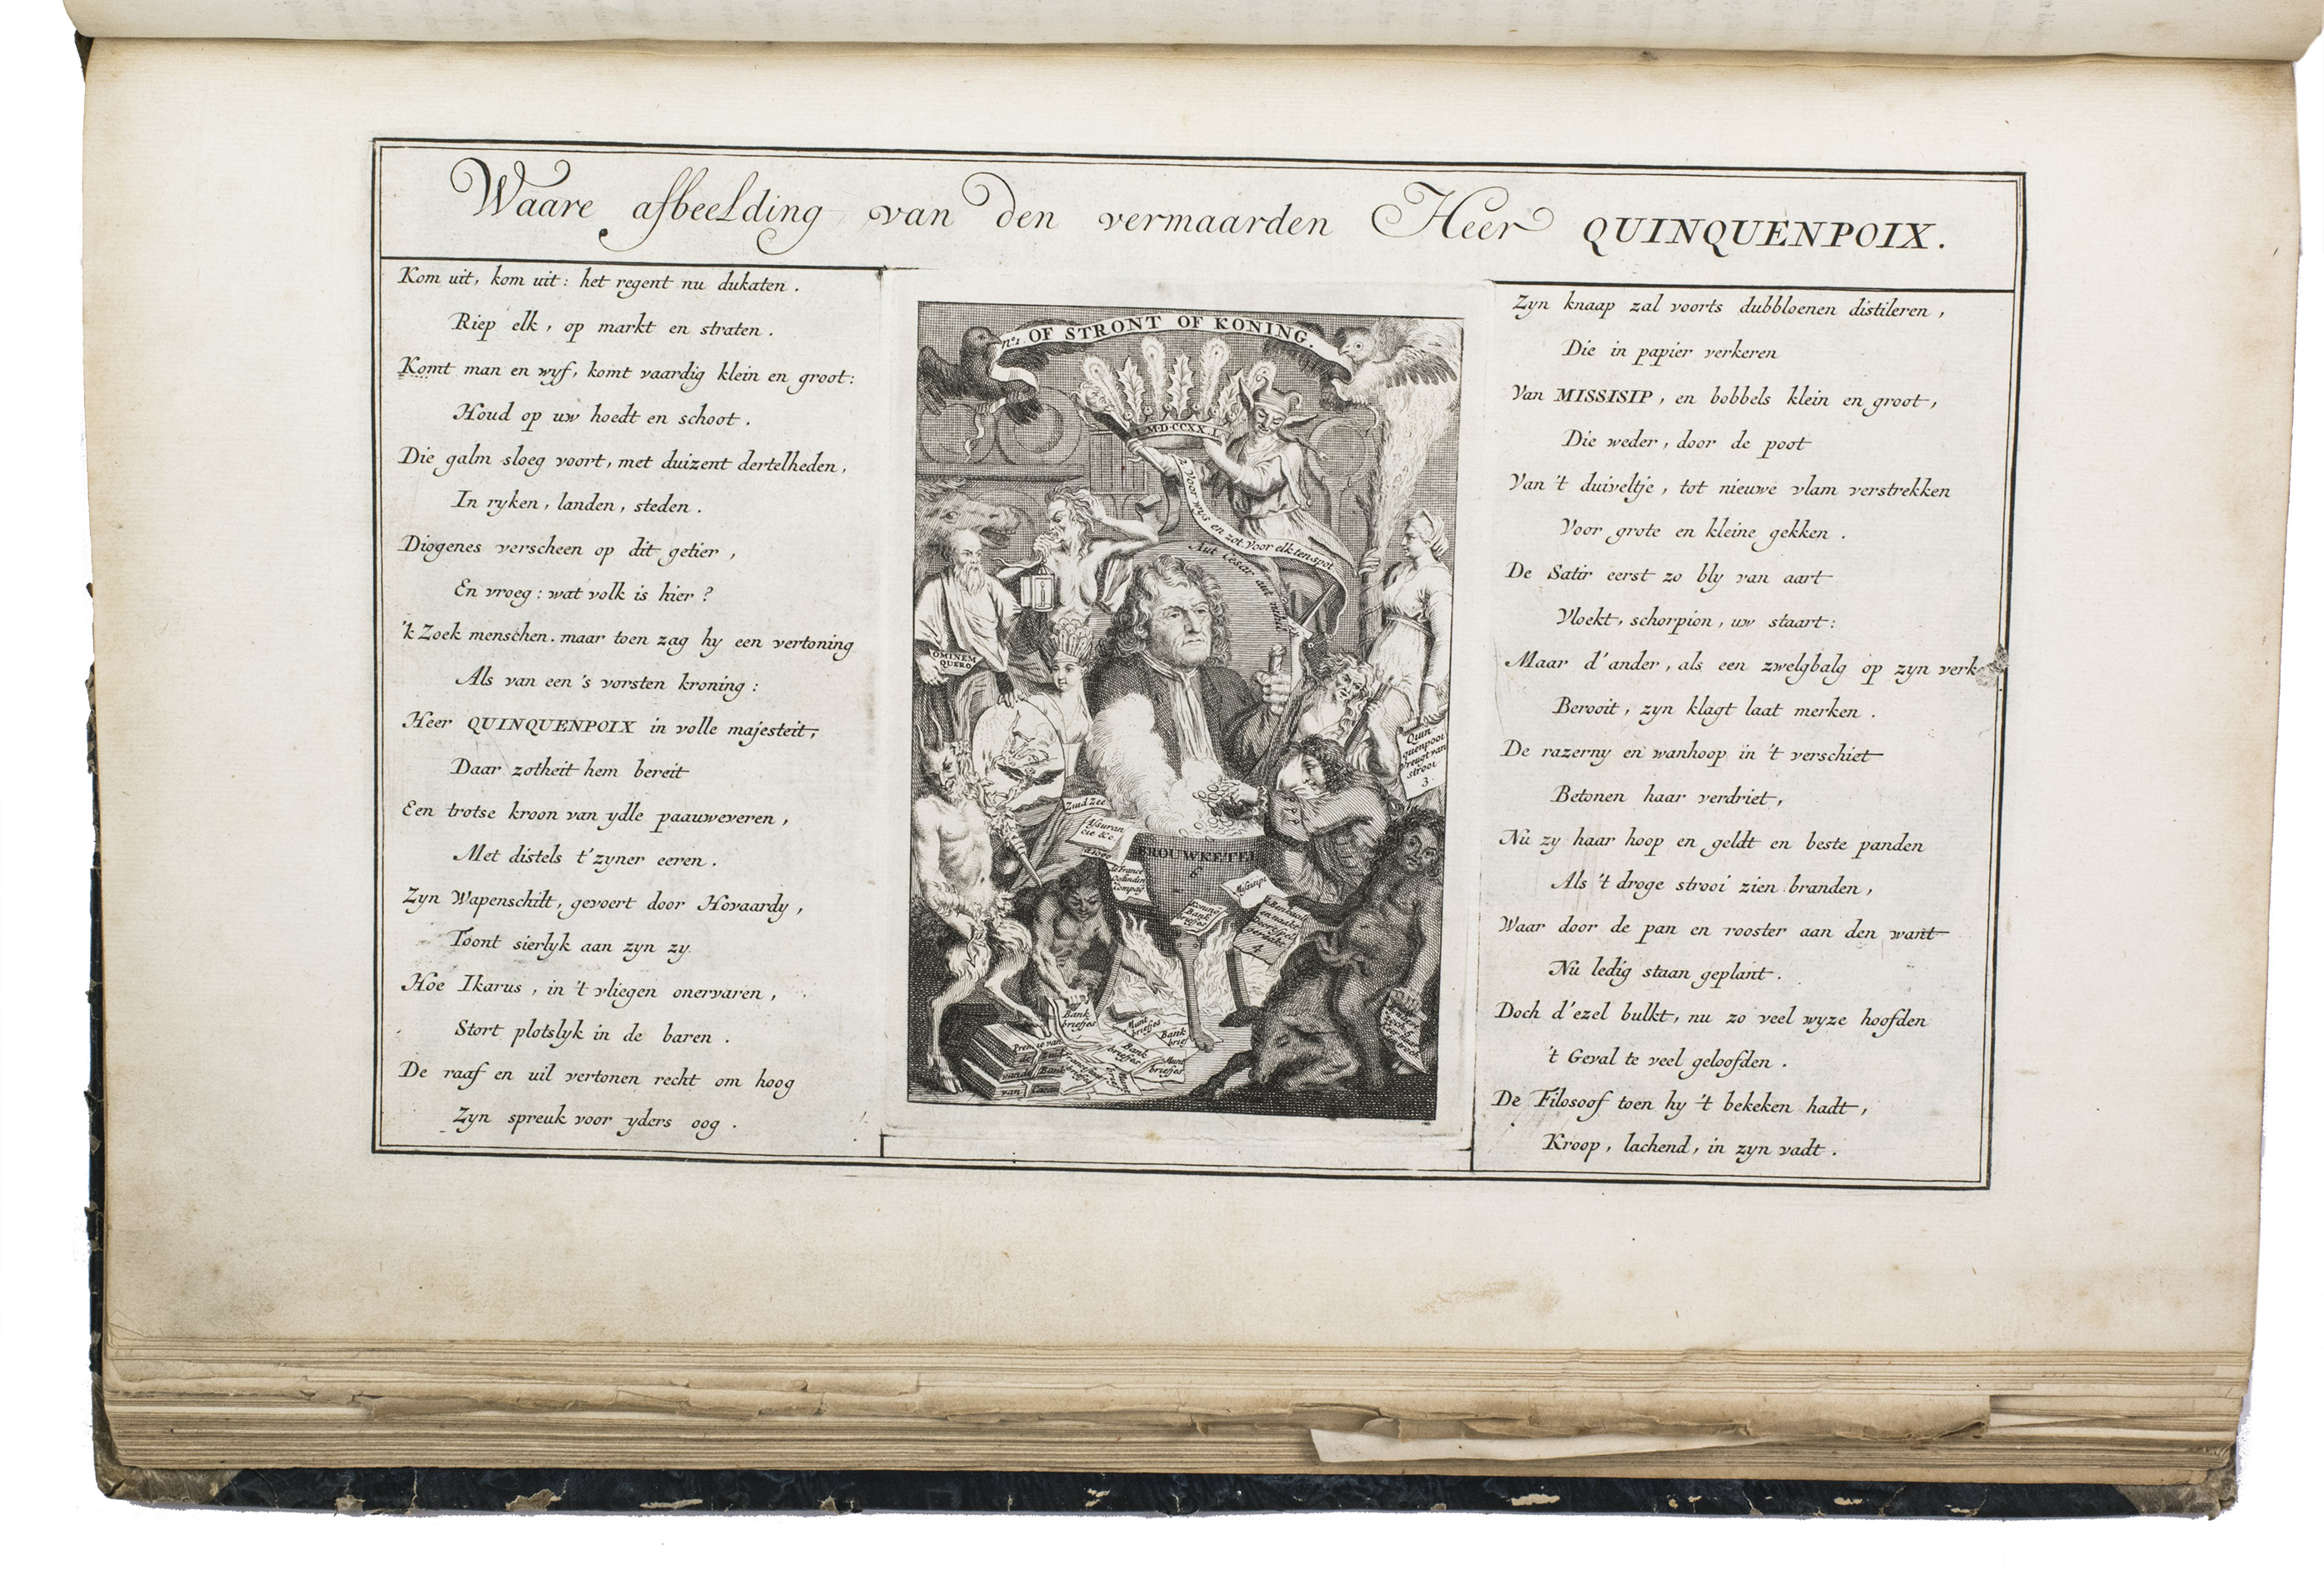 Waare afbeelding van den vermaarden Heer QUINQUENPOIX.
Kom uit, kom uit: het regent nu dukaten.
Riep elk, op markt en straten.
Komt man en wyf, komt vaardig klein en groot:
Houd op uw hoedt en schoot.
Die galm sloeg voort, met duizent dertelheden,
In ryken, landen, steden.
Diogenes verscheen op dit getier,
En vroeg: wat volk is hier?
'k Zoek menschen. maar toen zag hy een vertoning
Als van een 's vorsten kroning:
Heer QUINQUENPOIX in volle majesteit,
Daar zotheit hem bereit
Een trotse kroon van ydle paauweveren,
Met distels t'zyner eeren.
Zyn Wapenschilt, gevoert door Hovaardy,
Toont sierlyk aan zyn zy.
Hoe Ikarus, in 't vliegen onervaren,
Stort plotslyk in de baren.
De raaf en uil vertonen recht om hoog
Zyn spreuk voor yders oog.
nº1. OF STRONT OF KONING.
M·D·CCXX.
2. Voor wys en zot. Voor elk ten spot
Aut Cesar aut nihil
OMINEM
QUERO
Quin
quenpooi
Vreugt van
strooi
3.
Zuid Zee
Assuran
cie &c.
BROUWKETEL
Missisipi
4.
Bank
briefjes
Munt
briefjes
Bank
brief
Bank
briefjes
Munt
briefjes
van Cacau
Zyn knaap zal voorts dubbloenen distileren,
Die in papier verkeren
Van MISSISIP, en bobbels klein en groot,
Die weder, door de poot
Van 't duiveltje, tot nieuwe vlam verstrekken
Voor grote en kleine gekken.
De Satir eerst zo bly van aart
Vloekt, schorpion, uw staart:
Maar d'ander, als een zwelgbalg op zyn verk
Berooit, zyn klagt laat merken.
De razerny en wanhoop in 't verschiet
Betonen haar verdriet,
Nu zy haar hoop en geldt en beste panden
Als 't droge strooi zien branden,
Waar door de pan en rooster aan den want
Nu ledig staan geplant.
Doch d'ezel bulkt, nu zo veel wyze hoofden
't Geval te veel geloofden.
De Filosoof toen hy 't bekeken hadt,
Kroop, lachend, in zyn vadt.